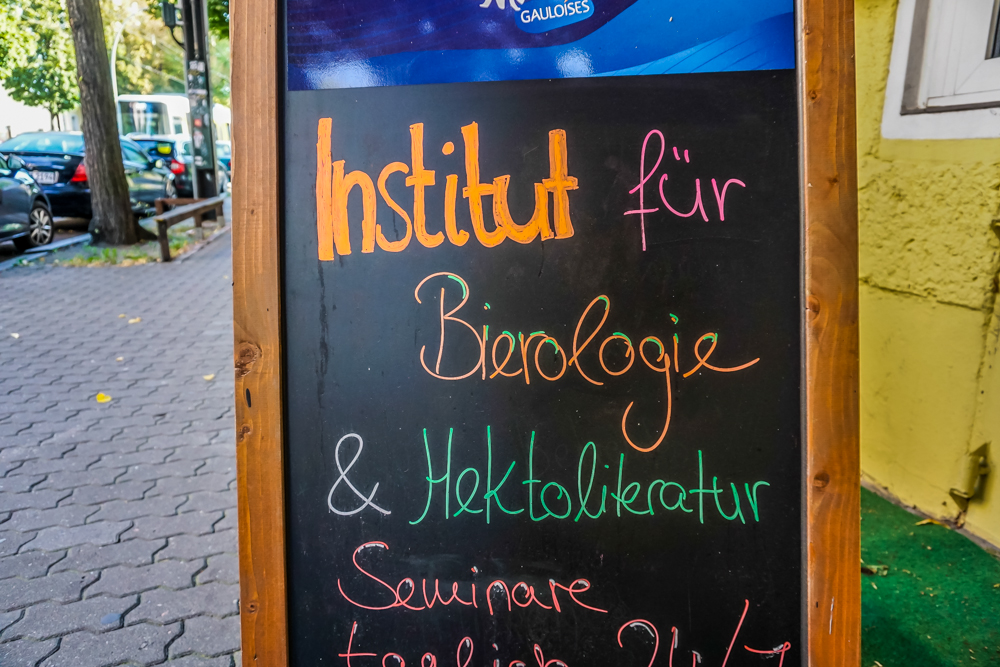 GAULOISES
Institut für
Bierologie
& Hektoliteratur
Seminare
täglich 24/7